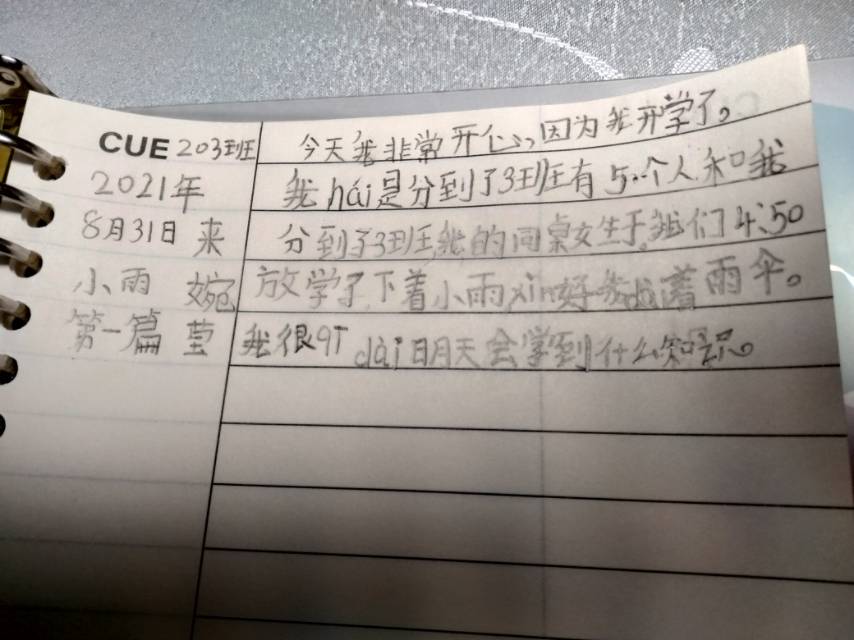 CUE 203班
2021年
8月31日 来
小雨 婉
第一篇 莹
今天我非常开心,因为我开学了。
我hái是分到了3班有5个人和我
分到了3班,我的同桌女生于。我们4:50
放学了下着小雨xìn好我着雨伞。
我很qī dài明天会学到什么知识。